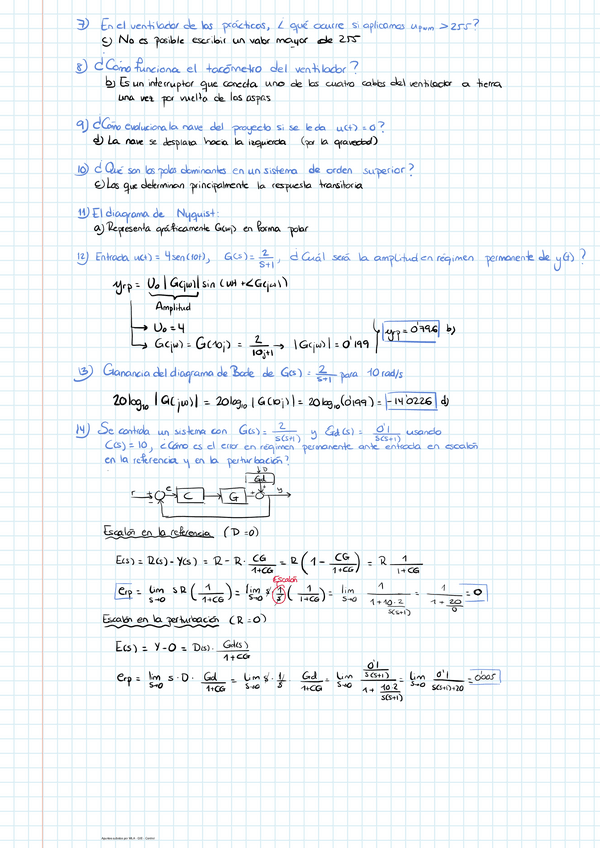 7) En el ventilador de las prácticas, ¿qué ocurre si aplicamos u_pwm > 255?
c) No es posible escribir un valor mayor de 255
8) ¿Cómo funciona el tacómetro del ventilador?
b) Es un interruptor que conecta uno de los cuatro cables del ventilador a tierra
una vez por vuelta de las aspas
9) ¿Cómo evoluciona la nave del proyecto si se le da u(t)=0?
d) La nave se desplaza hacia la izquierda (por la gravedad)
10) ¿Qué son los polos dominantes en un sistema de orden superior?
c) Los que determinan principalmente la respuesta transitoria
11) El diagrama de Nyquist:
a) Representa gráficamente G(jω) en forma polar
12) Entrada u(t) = 4sen(10t), G(s) = 2/(s+1), ¿Cuál será la amplitud en régimen permanente de y(t)?
y_rp = U₀ |G(jω)| sin(ωt + ∠G(jω))
Amplitud
→ U₀ = 4
→ G(jω) = G(10j) = 2/(10j+1) → |G(jω)| = 0'199
y_p = 0'796 b)
13) Ganancia del diagrama de Bode de G(s) = 2/(s+1) para 10 rad/s
20log₁₀ |G(jω)| = 20log₁₀ |G(10j)| = 20log₁₀(0'199) = -14'0226 d)
14) Se controla un sistema con G(s) = 2/(s(s+1)) y Gd(s) = 0'1/(s(s+1)) usando
C(s) = 10, ¿Cómo es el error en régimen permanente ante entrada en escalón
en la referencia y en la perturbación?
D
Gd
r + - e C G + + y
Escalón en la referencia (D=0)
E(s) = R(s) - Y(s) = R - R · CG/(1+CG) = R (1 - CG/(1+CG)) = R 1/(1+CG)
Escalón
e_rp = lim s→0 sR (1/(1+CG)) = lim s→0 s 1/s (1/(1+CG)) = lim s→0 1/(1+10·2/(s(s+1))) = 1/(1+20/0) = 0
Escalón en la perturbación (R=0)
E(s) = Y - 0 = D(s) · Gd(s)/(1+CG)
e_rp = lim s→0 s · D · Gd/(1+CG) = lim s→0 s · 1/s Gd/(1+CG) = lim s→0 (0'1/(s(s+1)))/(1+10·2/(s(s+1))) = lim s→0 0'1/(s(s+1)+20) = 0'005